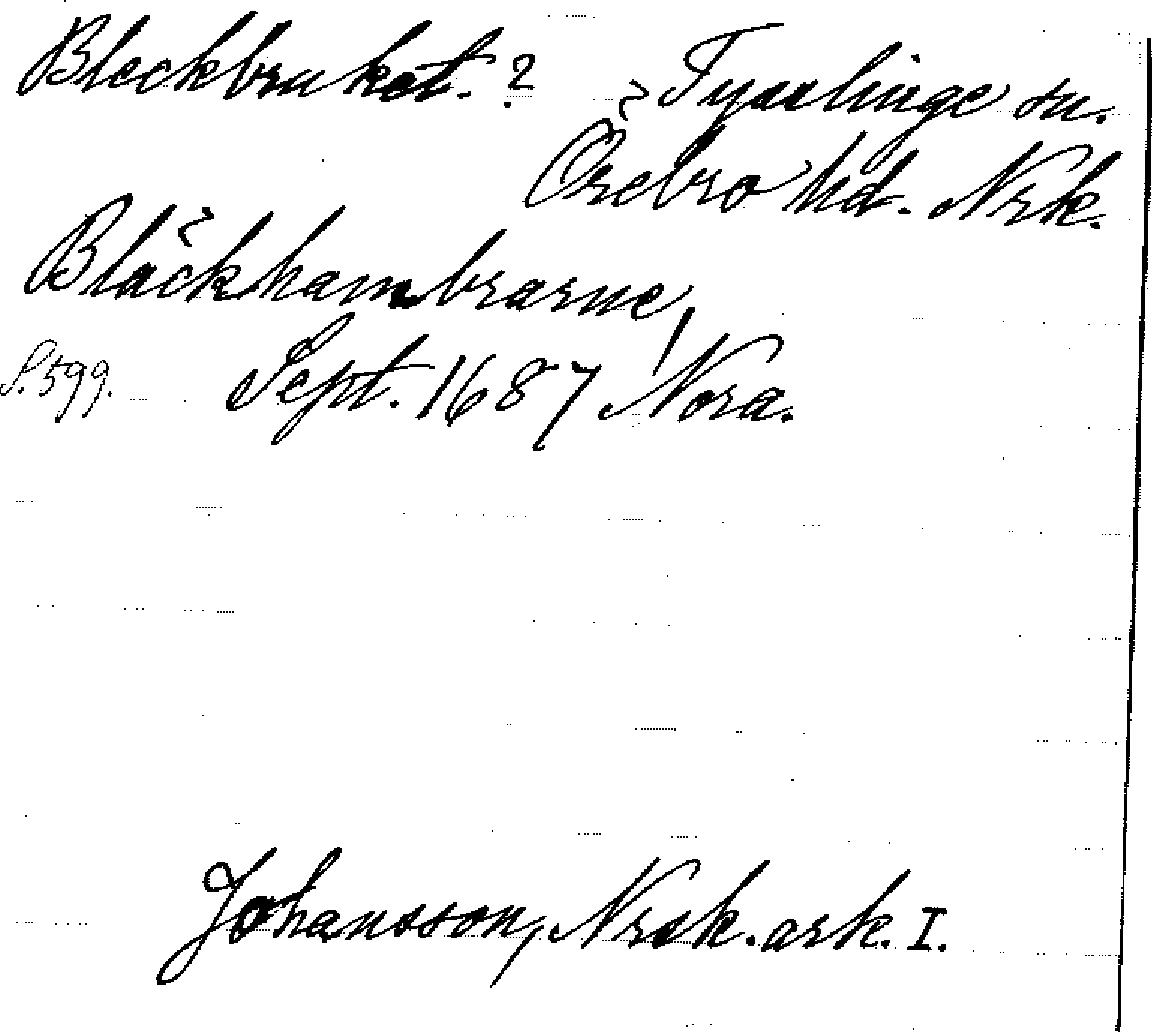 Bleckbruket. ? Tysslinge sn.
Örebro hd. Nrk.
Bläckhambrarne,
S. 599. Sept. 1687 / Nora.
Johansson, Nrsk. ark. I.